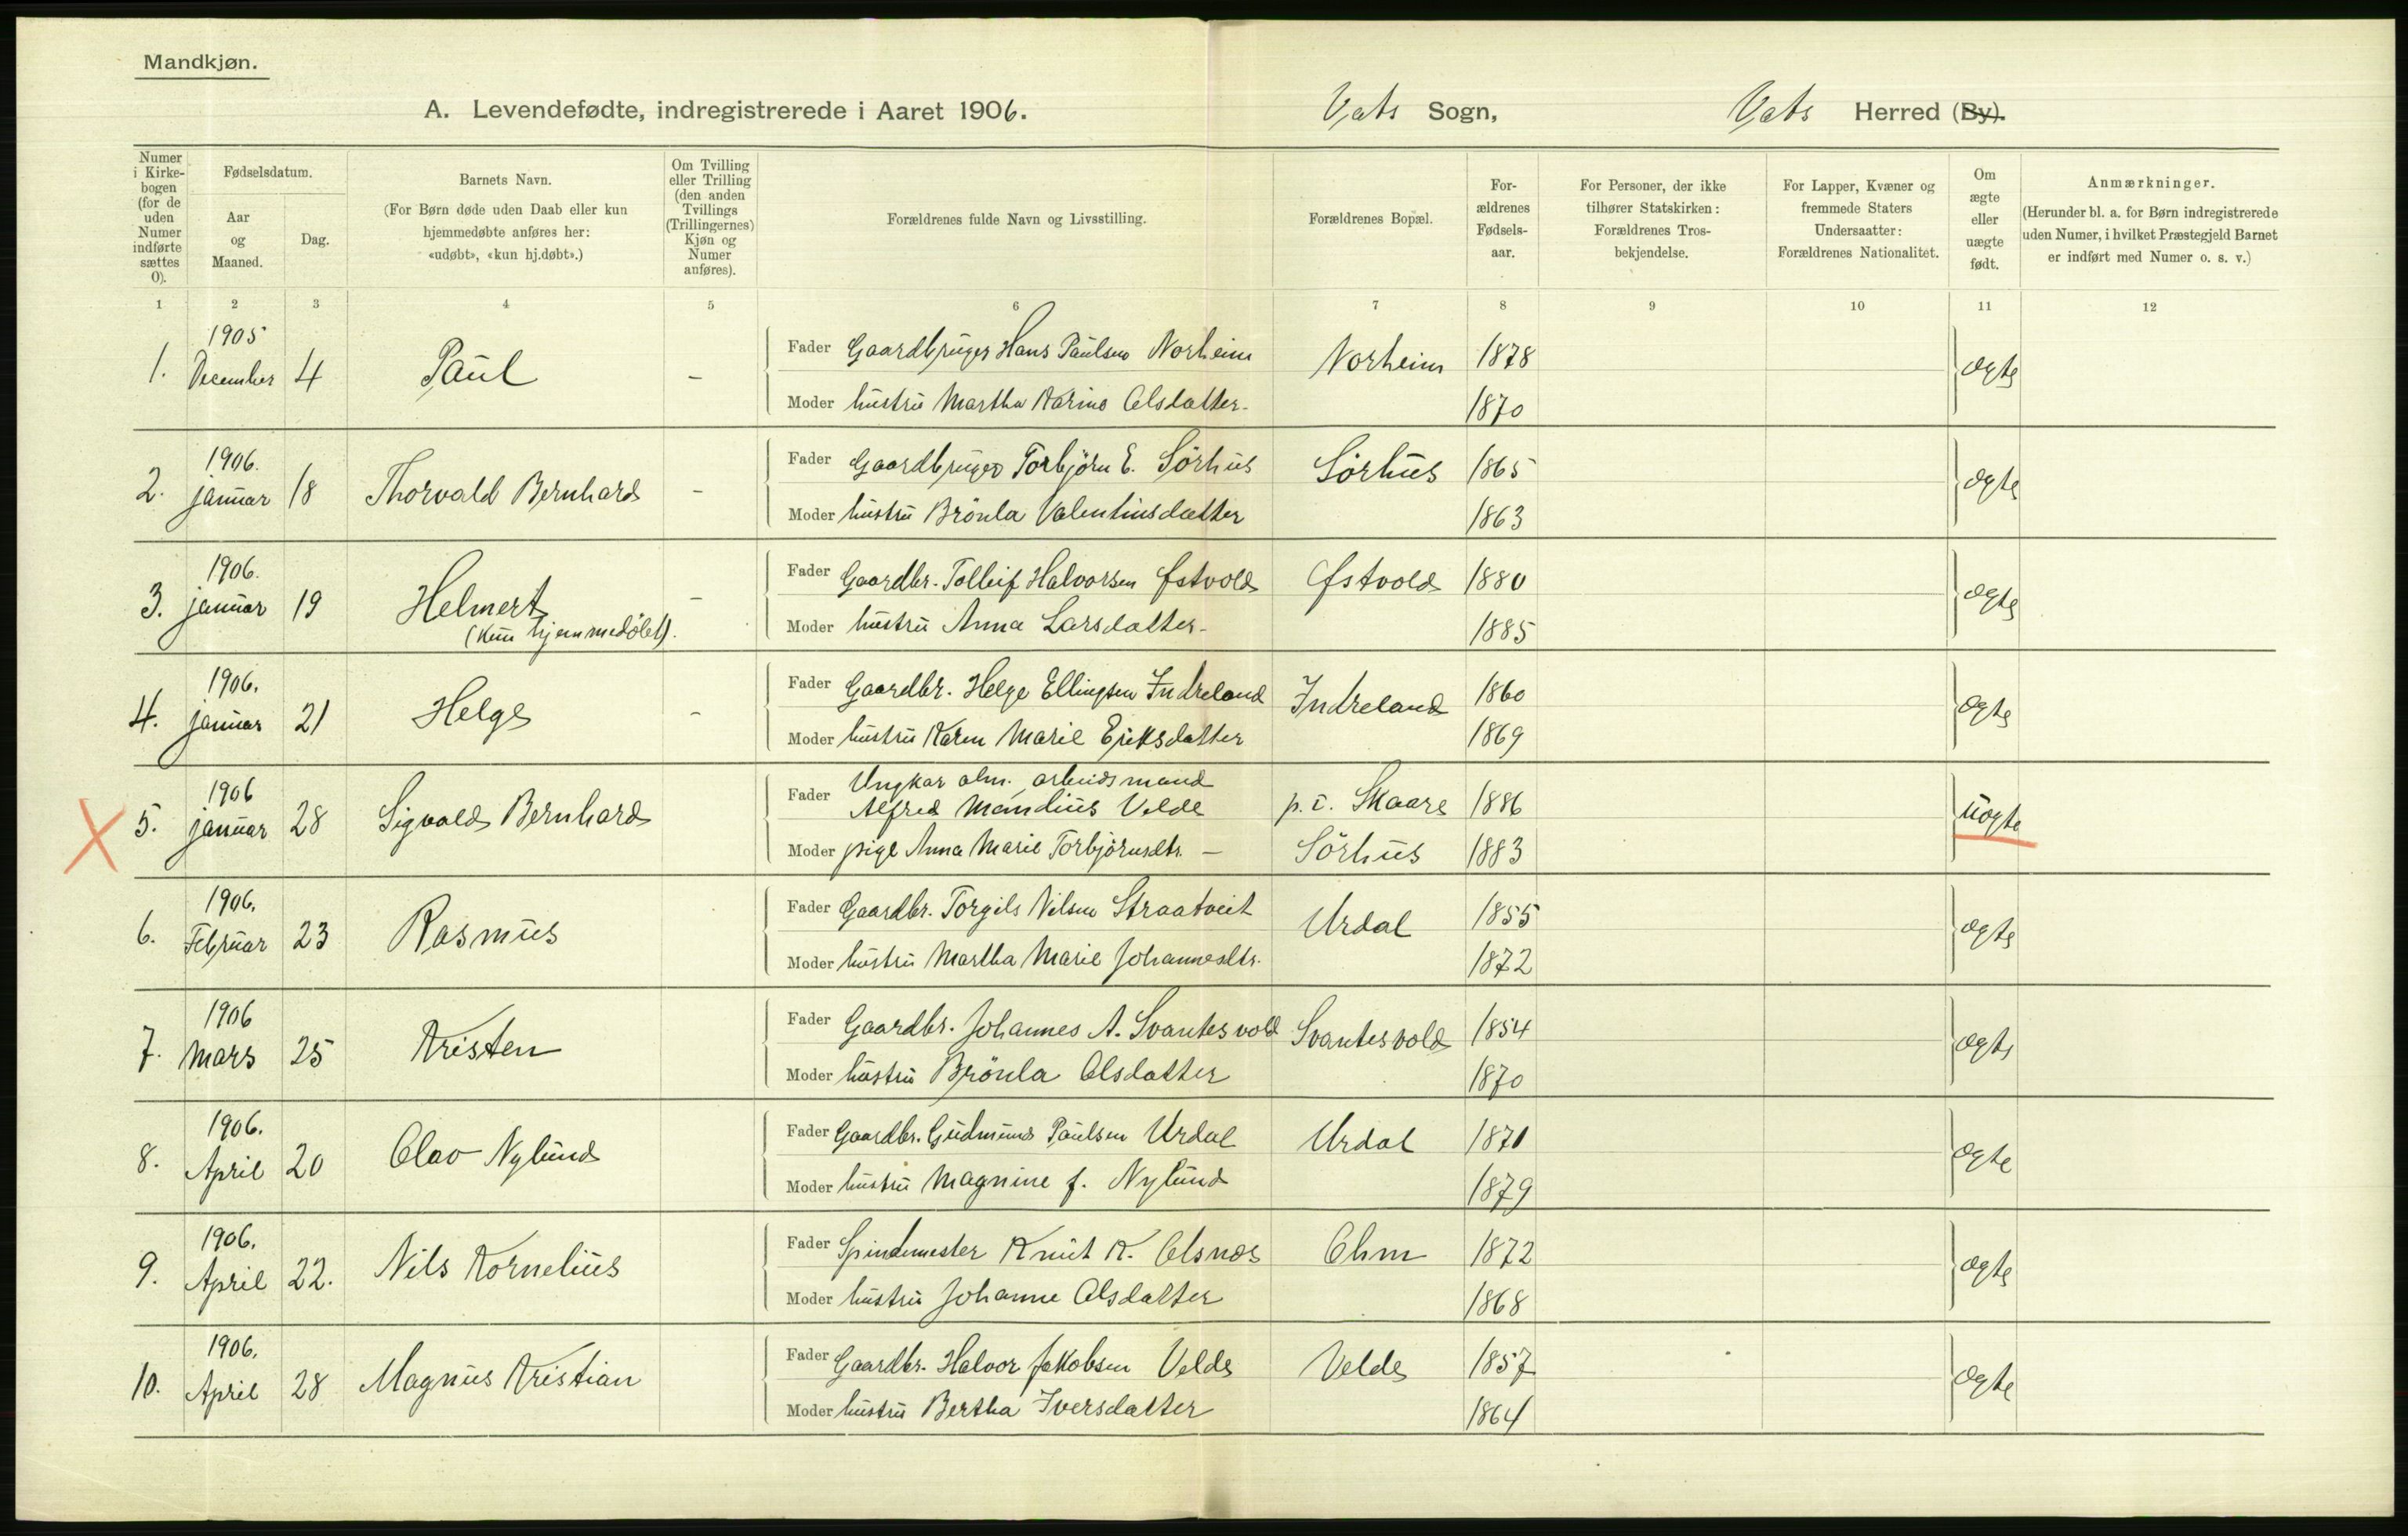 Mandkjøn.
A. Levendefødte, indregistrerede i Aaret 1906.
Vats Sogn,
Vats Herred (By).
Numer i Kirkebogen (for de uden Numer indførte sættes 0).
Fødselsdatum.
Aar og Maaned.
Dag.
Barnets Navn.
(For Børn døde uden Daab eller kun hjemmedøbte anføres her: «udøbt», «kun hj.døbt».)
Om Tvilling eller Trilling (den anden Tvillings (Trillingernes) Kjøn og Numer anføres).
Forældrenes fulde Navn og Livsstilling.
Forældrenes Bopæl.
Forældrenes Fødselsaar.
For Personer, der ikke tilhører Statskirken: Forældrenes Trosbekjendelse.
For Lapper, Kvæner og fremmede Staters Undersaatter: Forældrenes Nationalitet.
Om ægte eller uægte født.
Anmærkninger.
(Herunder bl. a. for Børn indregistrerede uden Numer, i hvilket Præstegjeld Barnet er indført med Numer o. s. v.)
1 2 3 4 5 6 7 8 9 10 11 12
1. 1905 December 4 Paul - Fader Gaardbruger Hans Paulsen Norheim Norheim 1878 ægte
Moder hustru Martha Karine Olsdatter. 1870
2. 1906. januar 18 Thorvald Bernhard - Fader Gaardbruger Torbjørn E. Sørhus Sørhus 1865 ægte
Moder hustru Brønla Valentinsdatter 1863
3. 1906. januar 19 Helmert (kun hjemmedøbt). - Fader Gaardbr. Tolleif Halvorsen Østvold Østvold 1880 ægte
Moder hustru Anna Larsdatter - 1885
4. 1906. januar 21 Helge - Fader Gaardbr. Helge Ellingsen Indreland Indreland 1860 ægte
Moder hustru Karen Marie Eriksdatter 1869
5. 1906 januar 28 Sigvald Bernhard Fader Ungkar alm. arbeidsmand Alfred Mandius Velde p. t. Skaare 1886 uægte
Moder pige Anna Marie Torbjørnsdtr. - Sørhus 1883
6. 1906. Februar 23 Rasmus Fader Gaardbr. Torgils Nilsen Straatveit Urdal 1855 ægte
Moder hustru Martha Marie Johannesdtr. 1872
7. 1906 Mars 25 Kristen Fader Gaardbr. Johannes A. Svantesvold Svantesvold 1854 ægte
Moder hustru Brønla Olsdatter 1870
8. 1906. April 20 Olav Nylund Fader Gaardbr. Gudmund Paulsen Urdal Urdal 1871 ægte
Moder hustru Magnine f. Nylund 1879
9. 1906. April 22. Nils Kornelius Fader Spindemester Knut K. Alsnes Ohm 1872 ægte
Moder hustru Johanne Olsdatter 1868
10. 1906. April 28 Magnus Kristian Fader Gaardbr. Halvor Jakobsen Velde Velde 1857 ægte
Moder hustru Bertha Iversdatter 1864